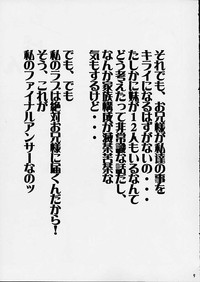 それでも、お兄様が私達の事を
キライになるはずがないの・・・
たしかに妹が12人もいるなんて
どう考えたって非常識な話だし、
なんか家族構成が滅茶苦茶な
気もするけど・・・
でも、でも
私のラブは絶対お兄様に届くんだから！
そう、これが
私のファイナルアンサーなのッ